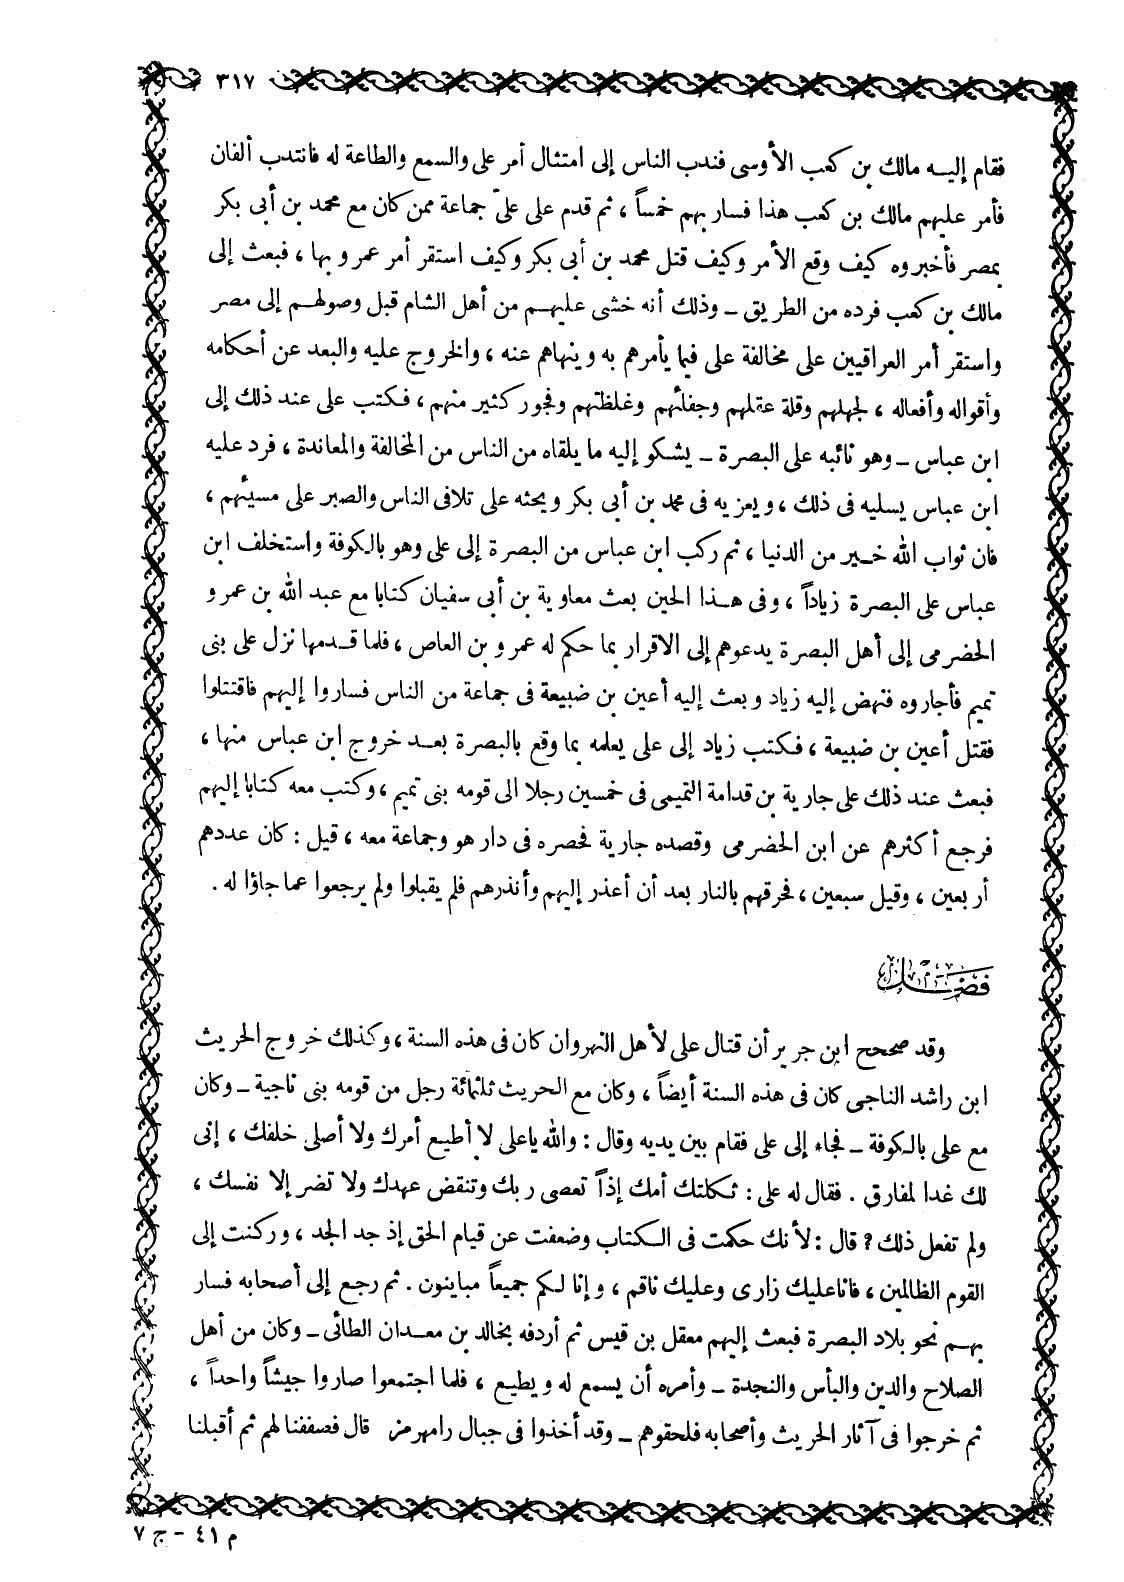 ٣١٧
فقام إليه مالك بن كعب الأوسى فندب الناس إلى امتثال أمر على والسمع والطاعة له فانتدب ألفان
فأمر عليهم مالك بن كعب هذا فسار بهم خمساً ، ثم قدم على علىّ جماعة ممن كان مع محمد بن أبى بكر
بمصر فأخبروه كيف وقع الأمر وكيف قتل محمد بن أبى بكر وكيف استقر أمر عمرو بها ، فبعث إلى
مالك بن كعب فرده من الطريق ـ وذلك أنه خشى عليهم من أهل الشام قبل وصولهم إلى مصر
واستقر أمر العراقيين على مخالفة على فيما يأمرهم به وينهاهم عنه ، والخروج عليه والبعد عن أحكامه
وأقواله وأفعاله ، لجهلهم وقلة عقلهم وجفائهم وغلظتهم وفجور كثير منهم ، فكتب على عند ذلك إلى
ابن عباس ـ وهو نائبه على البصرة ـ يشكو إليه ما يلقاه من الناس من المخالفة والمعاندة ، فرد عليه
ابن عباس يسليه فى ذلك ، ويعزيه فى محمد بن أبى بكر ويحثه على تلافى الناس والصبر على مسيئهم ،
فان ثواب الله خير من الدنيا ، ثم ركب ابن عباس من البصرة إلى على وهو بالكوفة واستخلف ابن
عباس على البصرة زياداً ، وفى هذا الحين بعث معاوية بن أبى سفيان كتابا مع عبد الله بن عمرو
الحضرمى إلى أهل البصرة يدعوهم إلى الاقرار بما حكم له عمرو بن العاص ، فلما قدمها نزل على بنى
تميم فأجاروه فنهض إليه زياد وبعث إليه أعين بن ضبيعة فى جماعة من الناس فساروا إليهم فاقتتلوا
فقتل أعين بن ضبيعة ، فكتب زياد إلى على يعلمه بما وقع بالبصرة بعد خروج ابن عباس منها ،
فبعث عند ذلك على جارية بن قدامة التميمى فى خمسين رجلا الى قومه بنى تميم ، وكتب معه كتابا إليهم
فرجع أكثرهم عن ابن الحضرمى وقصده جارية فحصره فى دار هو وجماعة معه ، قيل : كان عددهم
أربعين ، وقيل سبعين ، فحرقهم بالنار بعد أن أعذر إليهم وأنذرهم فلم يقبلوا ولم يرجعوا عما جاؤا له .
فصل
وقد صححح ابن جرير أن قتال على لأهل النهروان كان فى هذه السنة ، وكذلك خروج الحريث
ابن راشد الناجى كان فى هذه السنة أيضاً ، وكان مع الحريث ثلثمائة رجل من قومه بنى ناجية ـ وكان
مع على بالكوفة ـ فجاء إلى على فقام بين يديه وقال : والله ياعلى لا أطيع أمرك ولا أصلى خلفك ، إنى
لك غدا لمفارق . فقال له على : ثكلتك أمك إذاً تعصى ربك وتنقض عهدك ولا تضر إلا نفسك ،
ولم تفعل ذلك ؟ قال : لأنك حكمت فى الكتاب وضعفت عن قيام الحق إذ جد الجد ، وركنت إلى
القوم الظالمين ، فانا عليك زارى وعليك ناقم ، وإنا لكم جميعاً مباينون . ثم رجع إلى أصحابه فسار
بهم نحو بلاد البصرة فبعث إليهم معقل بن قيس ثم أردفه بخالد بن معدان الطائى ـ وكان من أهل
الصلاح والدين والبأس والنجدة ـ وأمره أن يسمع له ويطيع ، فلما اجتمعوا صاروا جيشاً واحداً ،
ثم خرجوا فى آثار الحريث وأصحابه فلحقوهم ـ وقد أخذوا فى جبال رامهرمز قال فصففنا لهم ثم أقبلنا
م ٤١ - ج ٧